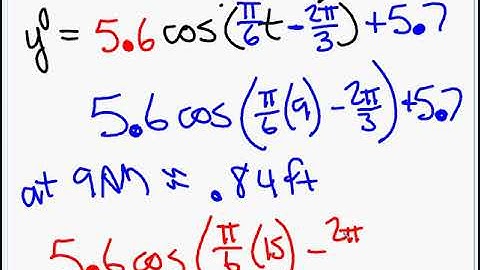 y = 5.6 cos(π/6 t - 2π/3) + 5.7
5.6 cos(π/6 (9) - 2π/3) + 5.7
at 9AM ≈ .84 ft
5.6 cos(π/6 (15) - 2π